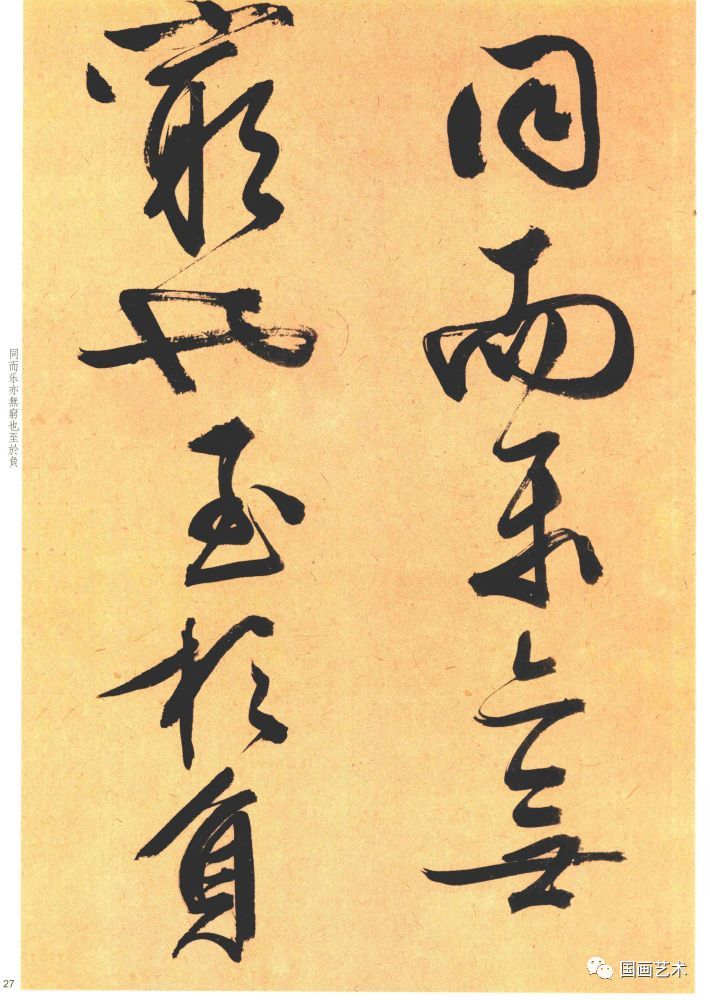 同而乐亦無
窮也至於負
同而乐亦無窮也至於負
27
国画艺术